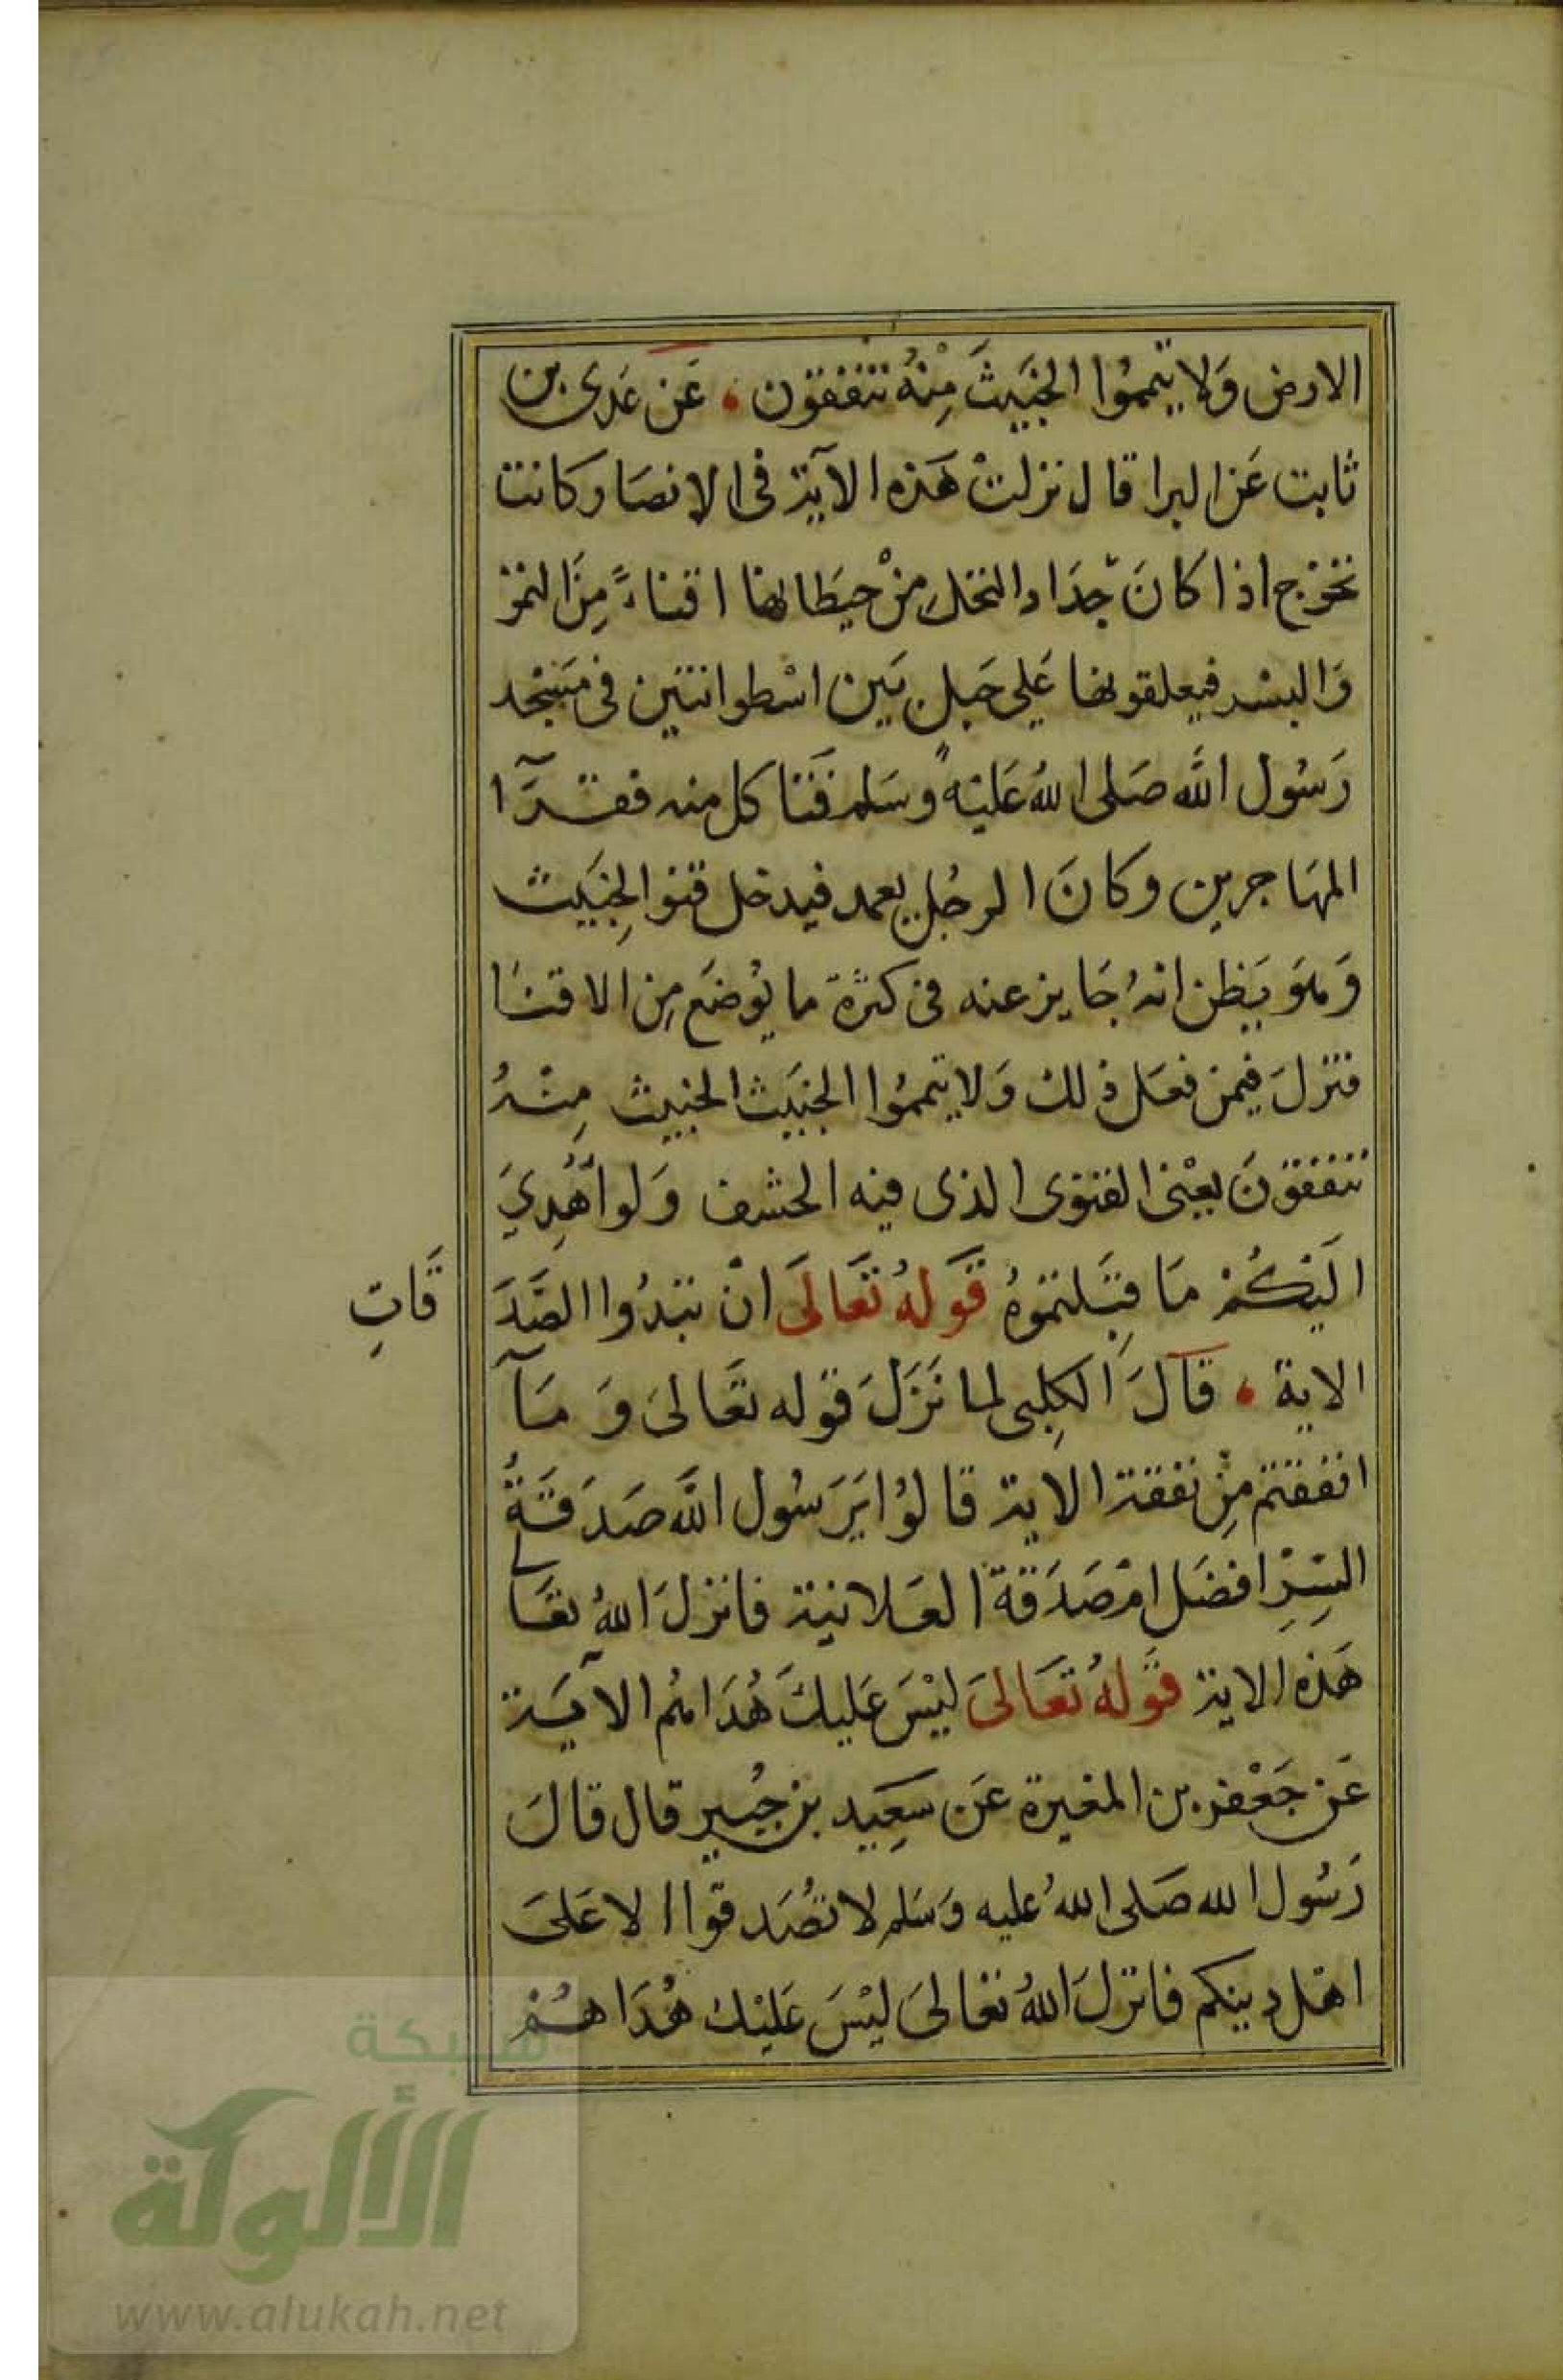 الارض وَلا تيمموُا الخبَيثَ مِنْهُ تنفقون ، عَن عَدى بن
ثابت عَن البرا قال نزلتْ هَذه الآية فى الانصَار كانت
تخرج اذا كانَ جدَاد النخل منْ حيَطانها اقناءً مِنَ التمر
وَالبسْر فيعلقونها عَلى حَبل بَين اسْطوانتين فى مَسْجد
رَسُول اللَّه صَلى اللهُ عَليْهِ وسَلم فَتاكل منه فقرآ
المهَاجرين وكانَ الرجُل يعمد فيدخل قنو الخِبَيث
وَهوَ يَظن انهُ جَايز عنه فى كثرة ما يُوضَع مِن الاقنَا
فنزلَ فيمن فعَل ذلك وَلا تيمموُا الخبَيث الخبيث مِنْهُ
تنفقونَ يعْنى القنوى الذى فيه الحشف وَلو اُهْدِيَ
الَيْكُمْ مَا قبَلتموُهُ قَولهُ تَعَالَى انْ تبْدُوا الصَّدَ
قَاتِ
الاية ، قالَ الكلِبى لما نَزَلَ قوله تعَالىَ وَ مَآ
انفقتم مِنْ نفقة الاية قالوُا يَرَسُول اللَّه صَدَقَةُ
السِرِّ افضَل امْ صَدَقة العَلانية فانزلَ اللهُ تعَالى
هَذه الاية قَولهُ تعَالىَ ليْسَ عَليكَ هُدَاهُم الآيَة
عَن جَعْفر بن المغيرة عَن سَعِيد بن جُبير قال قالَ
رَسُول الله صَلى اللهُ عليه وَسَلم لا تصَدقوا الا عَلىَ
اهْل دينكم فانزلَ اللهُ تعَالىَ ليْسَ عَليْك هُدَاهُمْ
شبكة
الألوكة
www.alukah.net